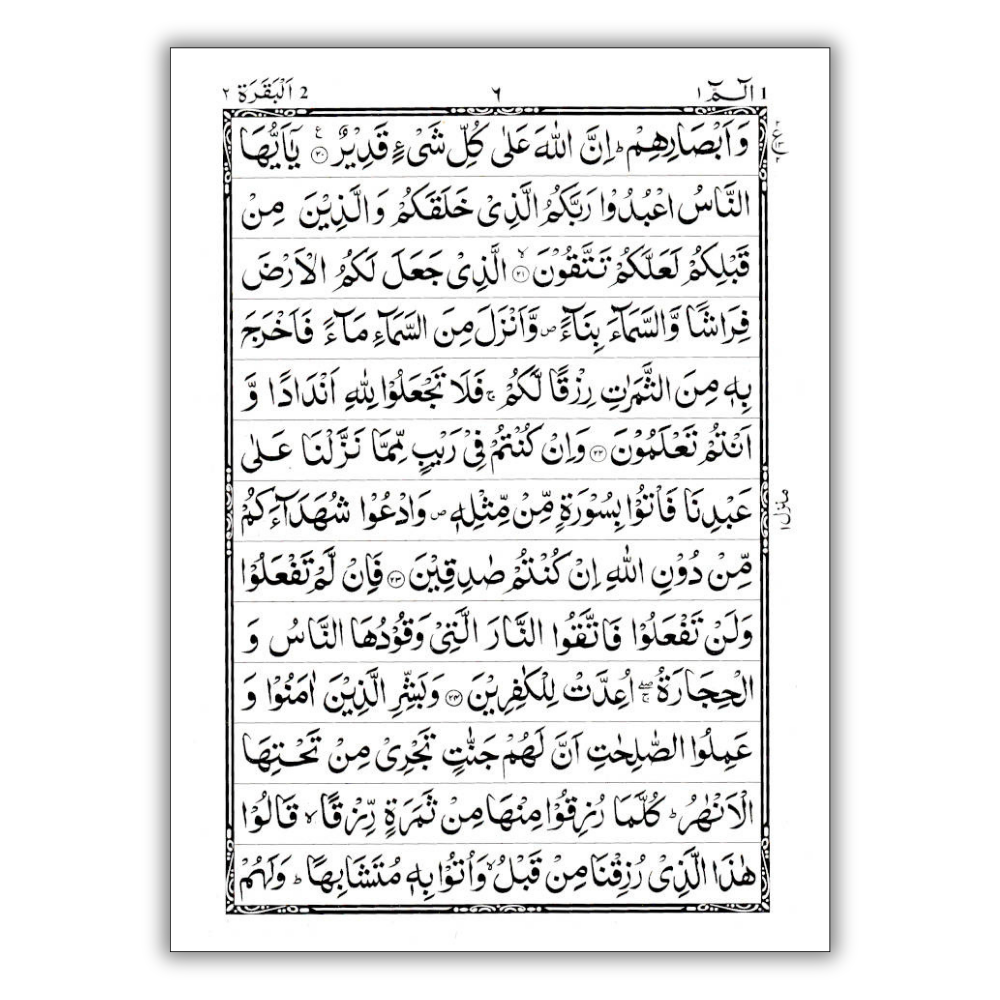 1 الٓـمّٓ ١ ٦ 2 اَلْبَقَرَة ٢
وَاَبْصَارِهِمْ ؕ اِنَّ اللّٰهَ عَلٰى كُلِّ شَىْءٍ قَدِيْرٌ ۧ﴿۲۰﴾ يٰٓاَيُّهَا
النَّاسُ اعْبُدُوْا رَبَّكُمُ الَّذِىْ خَلَقَكُمْ وَالَّذِيْنَ مِنْ
قَبْلِكُمْ لَعَلَّكُمْ تَتَّقُوْنَ ۙ﴿۲۱﴾ الَّذِىْ جَعَلَ لَكُمُ الْاَرْضَ
فِرَاشًا وَّالسَّمَآءَ بِنَآءً ص وَّاَنْزَلَ مِنَ السَّمَآءِ مَآءً فَاَخْرَجَ
بِهٖ مِنَ الثَّمَرٰتِ رِزْقًا لَّكُمْ ۚ فَلَا تَجْعَلُوْا لِلّٰهِ اَنْدَادًا وَّ
اَنْتُمْ تَعْلَمُوْنَ ﴿۲۲﴾ وَاِنْ كُنْتُمْ فِىْ رَيْبٍ مِّمَّا نَزَّلْنَا عَلٰى
عَبْدِنَا فَاْتُوْا بِسُوْرَةٍ مِّنْ مِّثْلِهٖ ص وَادْعُوْا شُهَدَآءَكُمْ
مِّنْ دُوْنِ اللّٰهِ اِنْ كُنْتُمْ صٰدِقِيْنَ ﴿۲۳﴾ فَاِنْ لَّمْ تَفْعَلُوْا
وَلَنْ تَفْعَلُوْا فَاتَّقُوا النَّارَ الَّتِىْ وَقُوْدُهَا النَّاسُ وَ
الْحِجَارَةُ ۖۚ اُعِدَّتْ لِلْكٰفِرِيْنَ ﴿۲۴﴾ وَبَشِّرِ الَّذِيْنَ اٰمَنُوْا وَ
عَمِلُوا الصّٰلِحٰتِ اَنَّ لَهُمْ جَنّٰتٍ تَجْرِىْ مِنْ تَحْتِهَا
الْاَنْهٰرُ ؕ كُلَّمَا رُزِقُوْا مِنْهَا مِنْ ثَمَرَةٍ رِّزْقًا ۙ قَالُوْا
هٰذَا الَّذِىْ رُزِقْنَا مِنْ قَبْلُ ۙ وَاُتُوْا بِهٖ مُتَشَابِهًا ؕ وَلَهُمْ
منزل ١